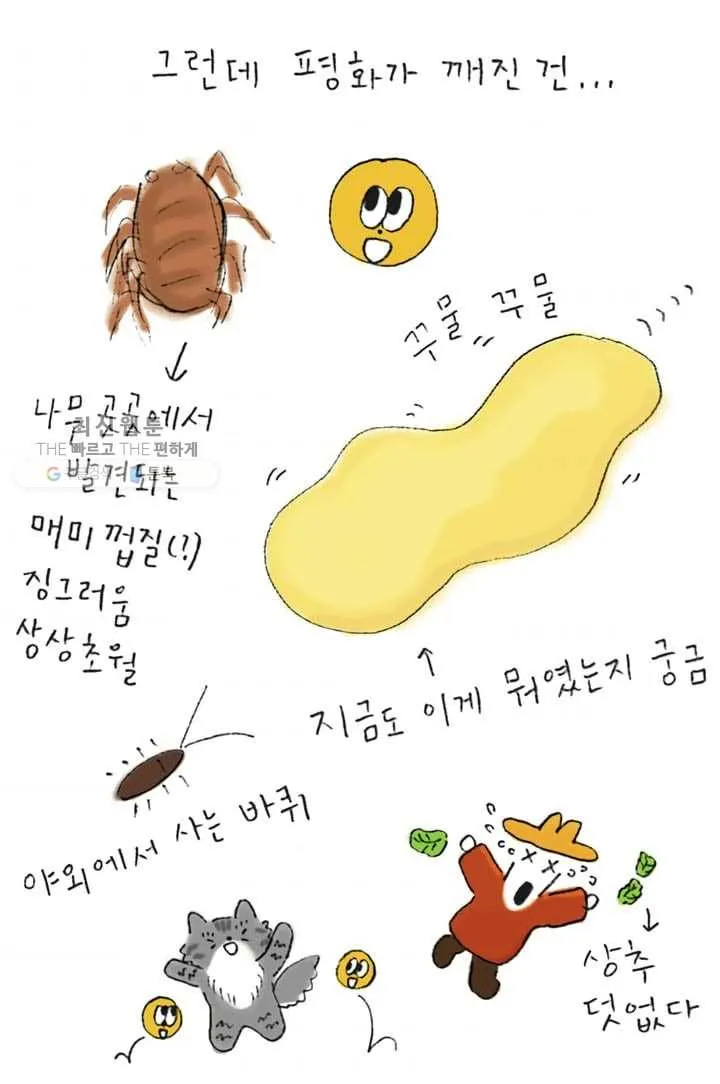 그런데 평화가 깨진 건...
꾸물 꾸물
나물 곳곳에서
최신웹툰
THE 빠르고 THE 편하게
발견되는
매미 껍질(?)
징그러움
상상초월
지금도 이게 뭐였는지 궁금
야외에서 사는 바퀴
상추
덧없다